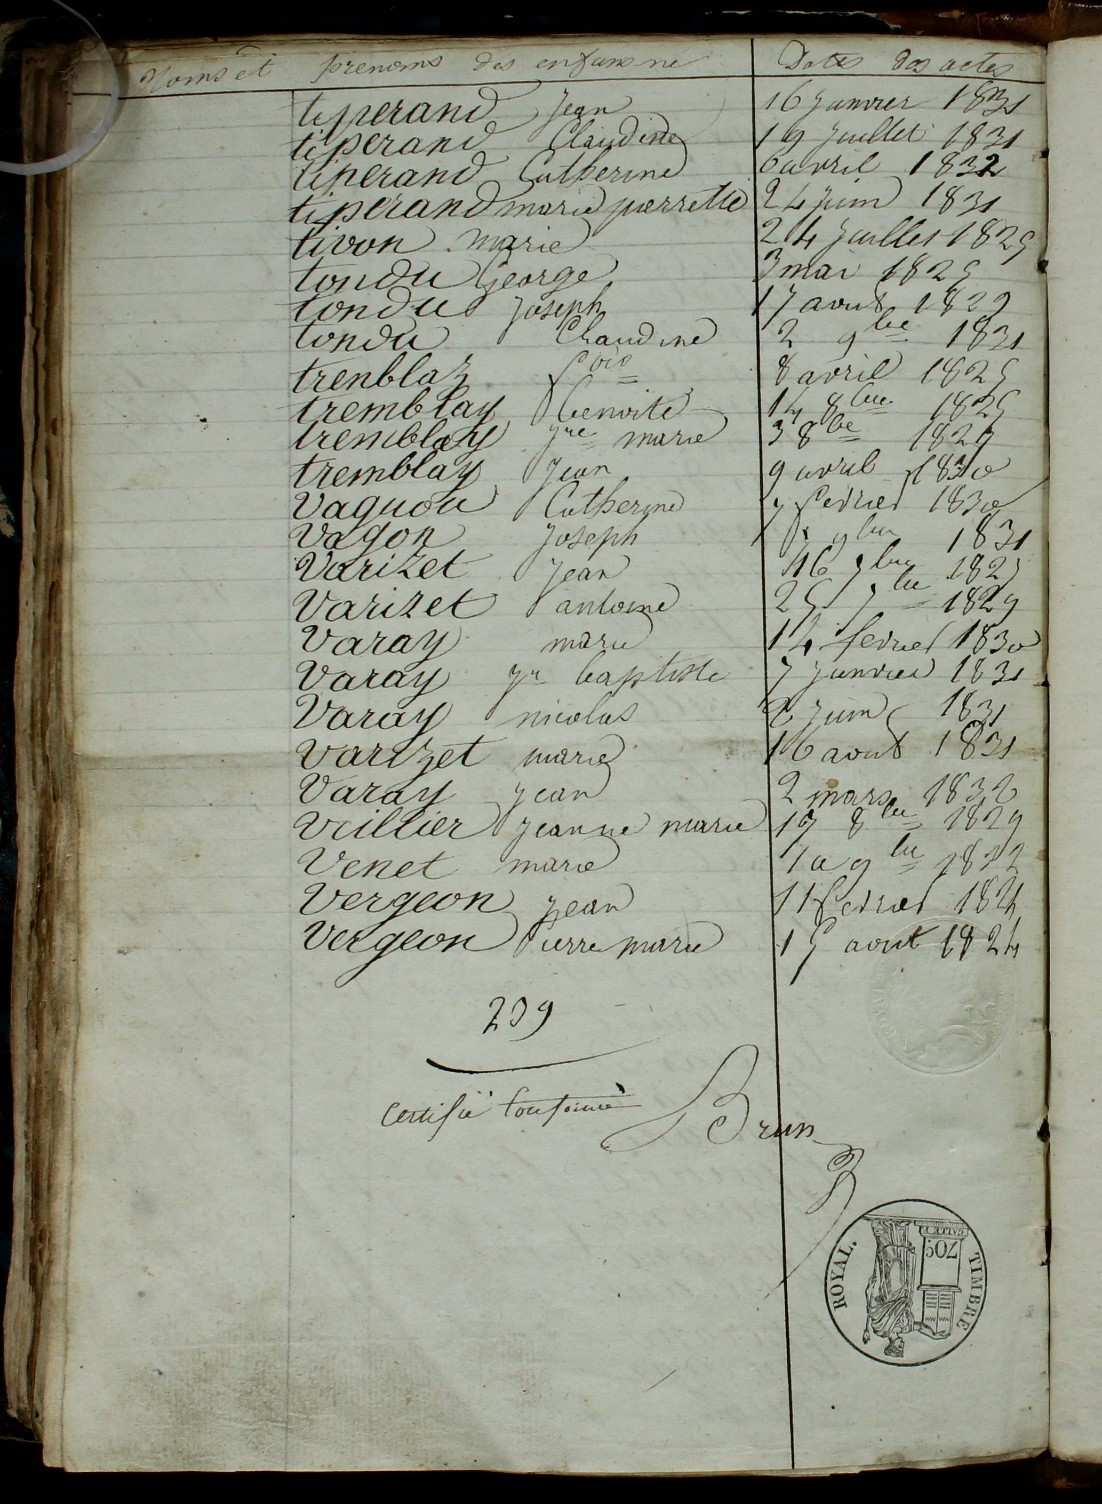 Noms et prenoms des enfans né Dates des actes
tiperand Jean 16 Janvier 1831
tiperand Claudine 19 Juillet 1831
tiperand Catherine 6 avril 1832
tiperand marie pierrette 24 Juin 1831
tivon marie 24 Juillet 1829
tondu George 3 mai 1829
tondu Joseph 17 aout 1829
tondu Claudine 2 9bre 1831
trenblaz 8 avril 1829
tremblay benoite 14 8bre 1829
tremblay Jne marie 3 8bre 1829
tremblay Jean 9 avril 1830
Vaguou Catherine 7 fevrier 1830
Vagon Joseph 9bre 1831
Varizet Jean 16 7bre 1829
Varizet antoine 25 7bre 1829
Varay marie 14 fevrier 1830
Varay Jn baptiste 7 Janvier 1831
Varay nicolas 2 Juin 1831
Varizet marie 16 aout 1831
Varay Jean 2 mars 1832
Veillier Jeanne marie 17 8bre 1829
Venet marie 10 9bre
Vergeon Jean 11 fevrier
Vergeon Pierre marie 15 aout 1824
239
Certifié Conforme
Brun
TIMBRE ROYAL.
70c